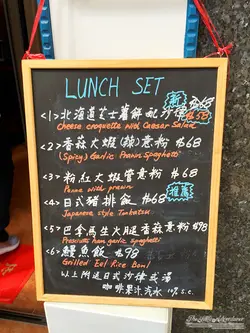 LUNCH SET
新
<1> 北海道芝士薯餅配沙律 $68
Cheese croquette with Caesar Salad $58
<2> 香蒜大蝦(辣)意粉 $68
(Spicy) Garlic Prawn Spaghetti
<3> 粉紅大蝦管意粉 $68
Penne with prawn
推薦
<4> 日式豬排飯 $68
Japanese style Tonkatsu
<5> 巴拿馬生火腿香蒜意粉 $98
Prosciutto ham garlic spaghetti
<6> 鰻魚飯 $98
Grilled Eel Rice Bowl
以上附送日式沙律或湯
咖啡果汁汽水 10% s.c.